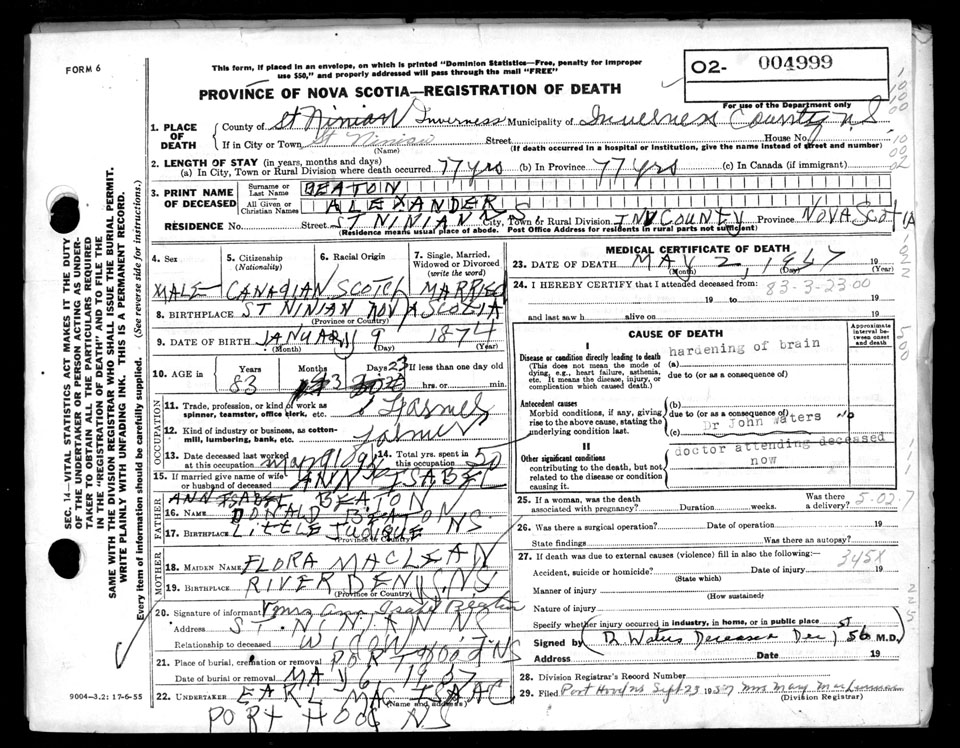 FORM 6
This form, if placed in an envelope, on which is printed "Dominion Statistics—Free, penalty for improper
use $50," and properly addressed will pass through the mail "FREE"
PROVINCE OF NOVA SCOTIA—REGISTRATION OF DEATH
O2- 004999
For use of the Department only
1. PLACE OF DEATH
County of St Ninian Inverness Municipality of Inverness County N.S
If in City or Town St Ninian Street House No.
(Name) (If death occurred in a hospital or institution, give the name instead of street and number)
2. LENGTH OF STAY (in years, months and days)
(a) In City, Town or Rural Division where death occurred 77 yrs (b) In Province 77 yrs (c) In Canada (if immigrant)
3. PRINT NAME OF DECEASED
Surname or Last Name BEATON
All Given or Christian Names ALEXANDER
RESIDENCE No. Street ST NINIAN N S City, Town or Rural Division INV COUNTY Province NOVA SCOTIA
(Residence means usual place of abode. Post Office Address for residents in rural parts not sufficient)
4. Sex 5. Citizenship (Nationality) 6. Racial Origin 7. Single, Married, Widowed or Divorced (write the word)
MALE CANADIAN SCOTCH MARRIED
8. BIRTHPLACE ST NINIAN NOVA SCOTIA
(Province or Country)
9. DATE OF BIRTH JANUARY 9 1874
(Month) (Day) (Year)
10. AGE in Years Months Days If less than one day old
83 3 23 hrs. or min.
OCCUPATION
11. Trade, profession, or kind of work as spinner, teamster, office clerk, etc. Farmer
12. Kind of industry or business, as cotton-mill, lumbering, bank, etc. Farmer
13. Date deceased last worked at this occupation 14. Total yrs. spent in this occupation 50
15. If married give name of wife or husband of deceased ANN ISABEL
ANN ISABEL BEATON
FATHER
16. NAME DONALD BEATON
17. BIRTHPLACE LITTLE JUDIQUE NS
(Province or Country)
MOTHER
18. MAIDEN NAME FLORA MACLEAN
19. BIRTHPLACE RIVER DENYS NS
(Province or Country)
20. Signature of informant Mrs Ann Isabel Beaton
Address ST NINIAN NS
Relationship to deceased WIDOW
21. Place of burial, cremation or removal PORT HOOD NS
Date of burial or removal MAY 6 1957
22. UNDERTAKER EARL MAC ISAAC
(Name and address)
PORT HOOD NS
9004—3.2: 17-6-55
SEC. 14—VITAL STATISTICS ACT MAKES IT THE DUTY
OF THE UNDERTAKER OR PERSON ACTING AS UNDERTAKER TO OBTAIN ALL THE PARTICULARS REQUIRED
IN THE "REGISTRATION OF DEATH" AND TO FILE THE
SAME WITH THE DIVISION REGISTRAR WHO SHALL ISSUE THE BURIAL PERMIT.
WRITE PLAINLY WITH UNFADING INK. THIS IS A PERMANENT RECORD.
Every item of information should be carefully supplied. (See reverse side for instructions.)
MEDICAL CERTIFICATE OF DEATH
23. DATE OF DEATH MAY 2, 1957 19
(Month) (Day) (Year)
24. I HEREBY CERTIFY that I attended deceased from:
83-3-2300
19 to 19
and last saw h alive on 19
CAUSE OF DEATH
Approximate interval between onset and death
I
Disease or condition directly leading to death
(This does not mean the mode of dying, e.g., heart failure, asthenia, etc. It means the disease, injury, or complication which caused death.)
hardening of brain
(a)
due to (or as a consequence of)
Antecedent causes
Morbid conditions, if any, giving rise to the above cause, stating the underlying condition last.
(b)
due to (or as a consequence of)
Dr John Waters No
(c)
II
Other significant conditions
contributing to the death, but not related to the disease or condition causing it.
doctor attending deceased
now
25. If a woman, was the death associated with pregnancy? Duration weeks. Was there a delivery?
5-02.7
26. Was there a surgical operation? Date of operation 19
State findings Was there an autopsy?
27. If death was due to external causes (violence) fill in also the following:—
345X
Accident, suicide or homicide? Date of injury 19
(State which)
Manner of injury
(How sustained)
Nature of injury
Specify whether injury occurred in industry, in home, or in public place
Signed by Dr Waters Deceased Dec 1st 56 M.D.
Address Date 19
28. Division Registrar's Record Number
29. Filed Port Hood NS Sept 23 1957 Mrs Mary MacLennan
(Division Registrar)